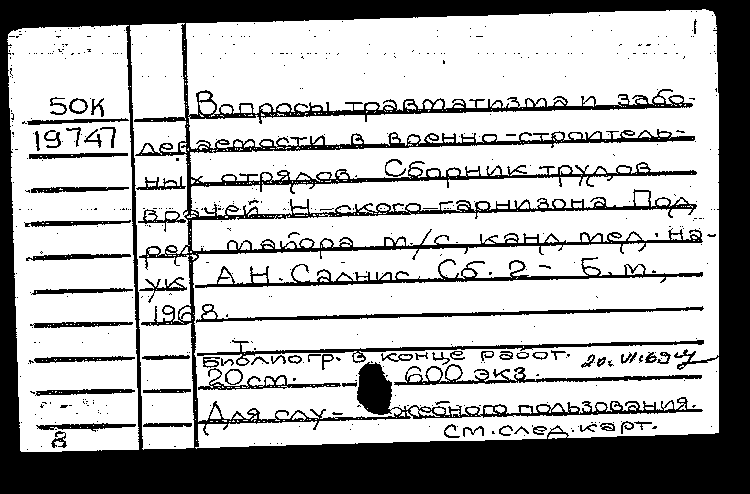 1
50К Вопросы травматизма и забо-
19747 леваемости в военно-строитель-
ных отрядов. Сборник трудов
врачей Н-ского гарнизона. Под
ред. майора м/с, канд. мед. на-
ук А.Н. Салнис. Сб. 2- Б.м.,
1968.
I.
Библиогр. в конце работ. 20.VI.69
20см. 600 экз.
Для слу- жебного пользования.
8 см. след. карт.